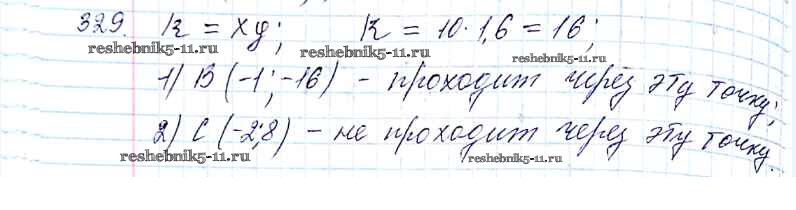 329. k = xy; k = 10·1,6 = 16;
reshebnik5-11.ru reshebnik5-11.ru
1) B (-1; -16) - проходит через эту точку;
2) C (-2; 8) - не проходит через эту точку.
reshebnik5-11.ru reshebnik5-11.ru